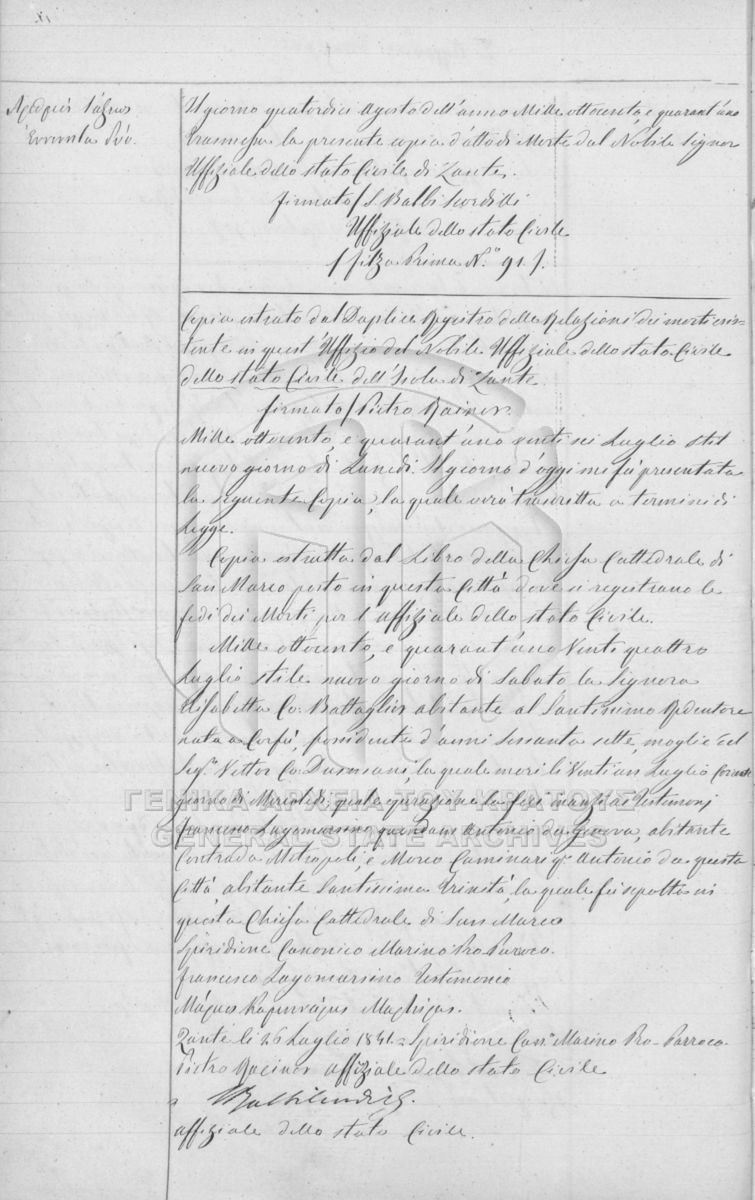 Αριθμός τάξεως
Εννενήντα δύο.
Il giorno quatordici Agosto dell'anno Mille ottocento, e quarant'uno
Trasmessa la presente copia d'atto di Morte dal Nobile Signor
Uffiziale dello stato Civile di Zante.
firmato / S. Balbi Scordilli
Uffiziale dello stato Civile
/ filza Prima N.º 91 /.
Copia estrato dal Duplice Registro delle Relazioni dei morti esis-
tente in quest'Uffizio del Nobile Uffiziale dello stato Civile
dello stato Civile dell'Isola di Zante.
firmato / Pietro Rainer.
Mille ottocento, e quarant'uno venti sei Luglio stil
nuovo giorno di Lunedi. Il giorno d'oggi mi fù presentata
la seguente Copia, la quale verà trascritta a termini di
Legge.
Copia estratta dal Libro della Chiesa Cattedrale di
San Marco posto in questa Città dove si registrano le
fedi dei Morti per l'affiziale dello stato Civile.
Mille ottocento, e quarant'uno Venti quattro
Luglio stile nuovo giorno di Sabato la Signora
Elisabetta Co: Battaglia abitante al Santissimo Redentore
nata a Corfù, possidente d'anni sessanta sette, moglie del
Sigr. Vettor Co: Dusmani, la quale morì li Venti un Luglio Corrente
giorno di Mercoledi; questa operazione la feci inanzi ai Testimonj
Francesco Lagomarsino quondam Antonio da Genova, abitante
Contrada Metropoli, e Marco Caminari qm Antonio da questa
Città, abitante Santissima Trinità, la quale fù sepolta in
questa Chiesa Cattedrale di San Marco
Spiridione Canonico Marino Pro Parroco.
francesco Lagomarsino Testimonio
Μάρκος Καμινάρης Μαρτυρας.
Zante li 26 Luglio 1841 = Spiridione Can.º Marino Pro-Parroco.
Pietro Raciner affiziale dello stato Civile
affiziale dello stato Civile.
ΓΕΝΙΚΑ ΑΡΧΕΙΑ ΤΟΥ ΚΡΑΤΟΥΣ
GENERAL STATE ARCHIVES